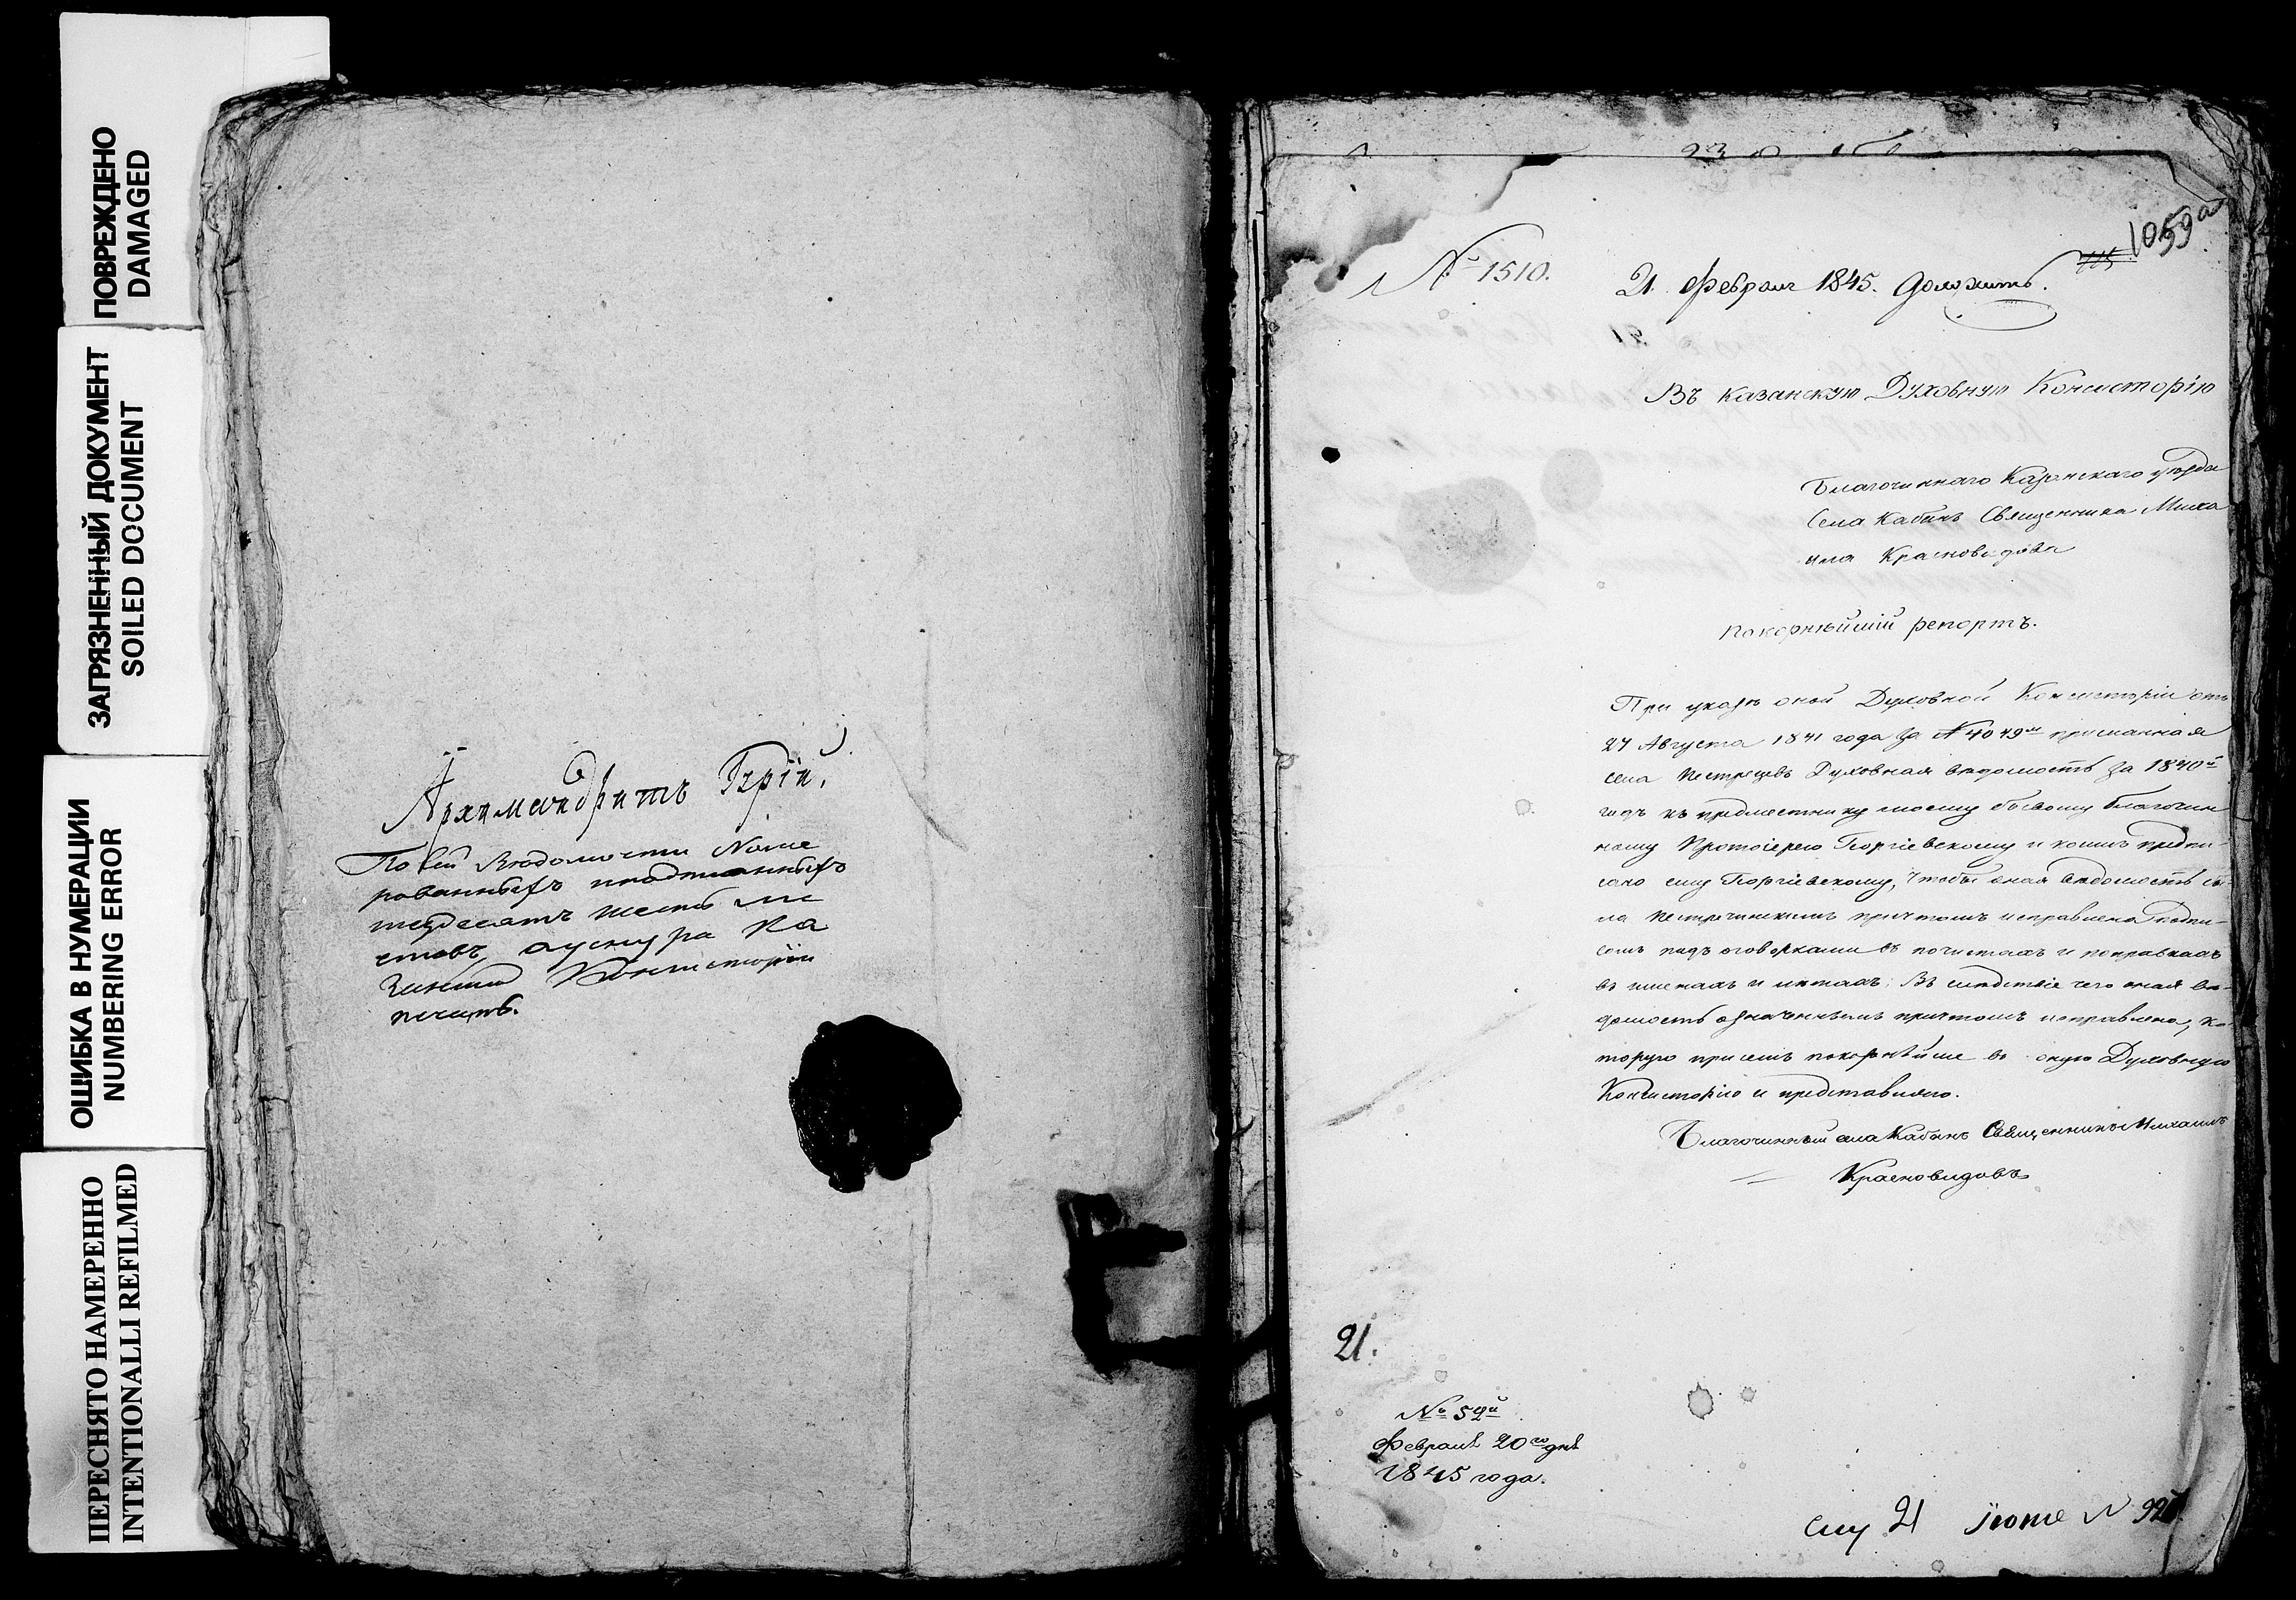 ПОВРЕЖДЕНО
DAMAGED
ЗАГРЯЗНЕННЫЙ ДОКУМЕНТ
SOILED DOCUMENT
ОШИБКА В НУМЕРАЦИИ
NUMBERING ERROR
ПЕРЕСНЯТО НАМЕРЕННО
INTENTIONALLI REFILMED
Архимандритъ Гврій.
По сей Вѣдомости Номе
рованныхъ
тездесятъ шесть ли
стовъ, Ка
Консисторіи
печать.
1059а
№ 1510.
21. Февраля 1845. Доложить.
Въ Казанскую Духовную Консисторію
Благочиннаго Казанскаго уѣзда
Села Кабанъ Священника Миха
ила Красновидова
Покорнѣйшій репортъ.
При указѣ оной Духовной Консисторіи отъ
27 Августа 1841 года за № 4049мъ присланная
села Пестрецовъ Духовная вѣдомость за 1840й
годъ къ предместнику моему бывшему благочин
ному Протоіерею Георгіевскому и коимъ предпи-
сано ему Георгіевскому, чтобы оная вѣдомость се-
ла Пестречинскимъ причтомъ исправлена подпи-
сомъ подъ оговорками въ почисткахъ и поправкахъ
въ именахъ и лѣтахъ. Въ слѣдствіе чего оная вѣ-
домость означеннымъ причтомъ исправлена, ко-
торую при семъ покорнѣйше во оную Духовную
Консисторію и представляю.
Благочинный села Кабанъ Священникъ Михаилъ
Красновидовъ
21.
№ 52й
Февраля 20го дня
1845 года.
21 №